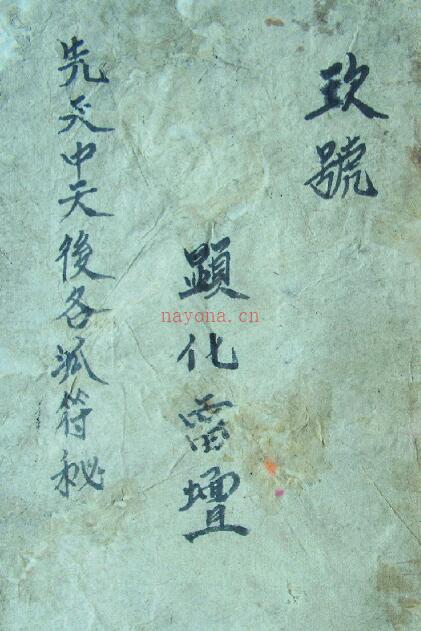 玖號
顯化雷壇
先天中天後各派符秘
nayona.cn